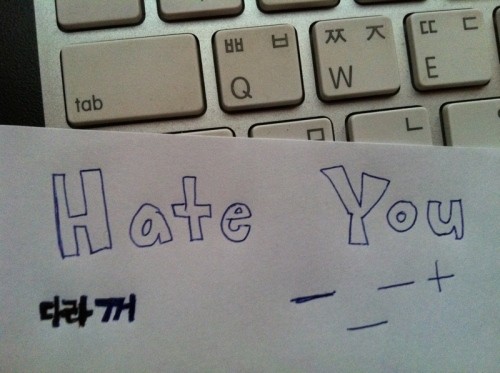 ㅃ ㅂ ㅉ ㅈ ㄸ ㄷ
tab Q W E
ㅁ ㄴ
Hate You
다라꺼 — _ — +